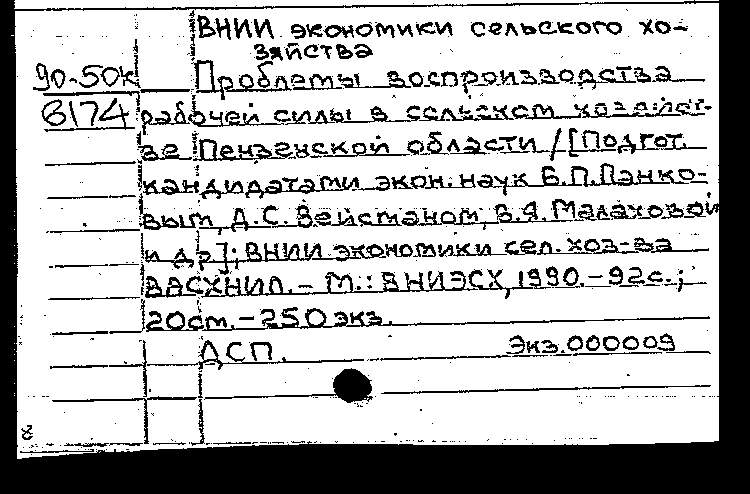 ВНИИ экономики сельского хо-
зяйства
90-50к Проблемы воспроизводства
6174 рабочей силы в сельском хозяйст-
ве Пензенской области / [Подгот.
кандидатами экон. наук Б.П.Панко-
вым, Д.С. Вейсманом, В.Я. Малаховой
и др]; ВНИИ экономики сел. хоз-ва
ВАСХНИЛ. – М.: ВНИЭСХ, 1990. – 92с.;
20см. – 250 экз.
ДСП. Экз.000009
8